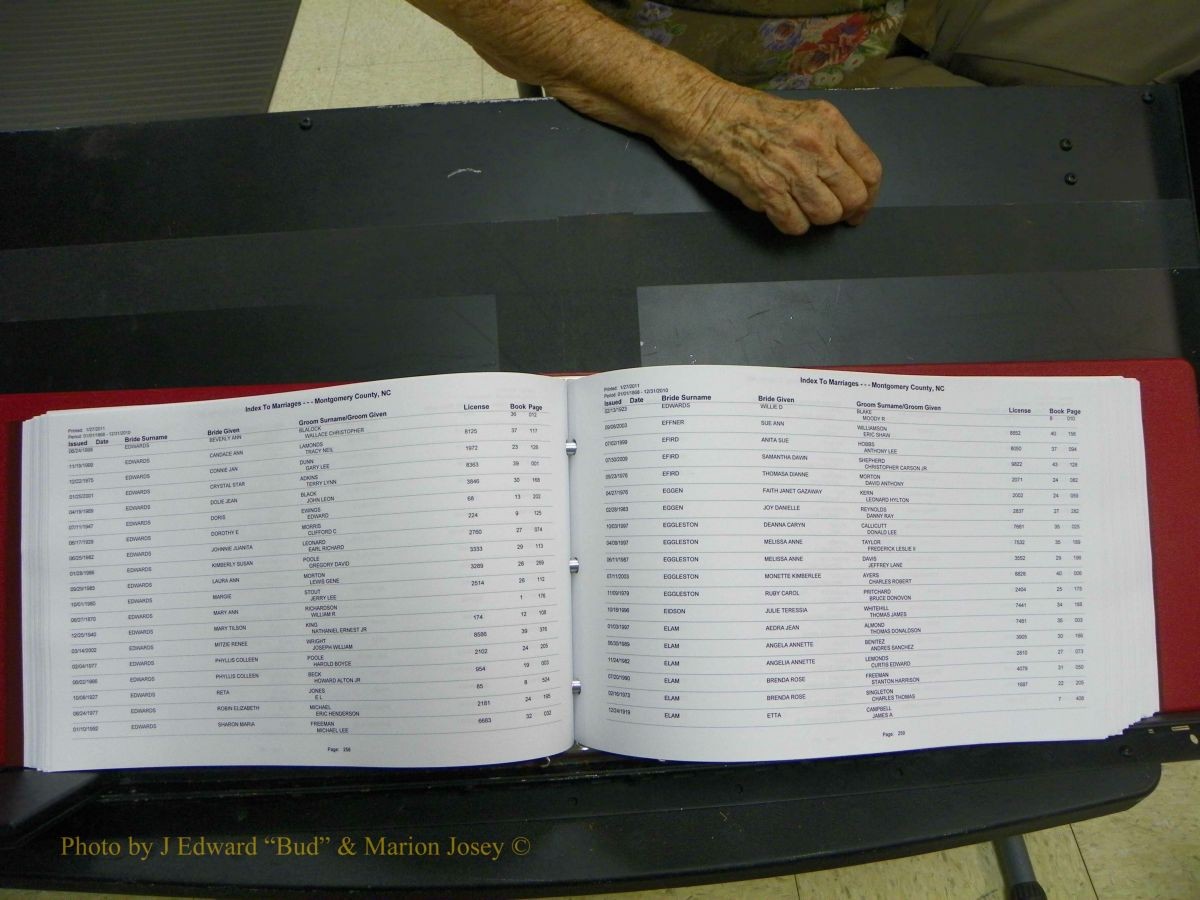 Index To Marriages - - - Montgomery County, NC
Printed: 1/27/2011
Period: 01/01/1868 - 12/31/2010
Issued Date Bride Surname Bride Given Groom Surname/Groom Given License Book Page
EDWARDS BEVERLY ANN BLALOCK 36 012
WALLACE CHRISTOPHER 8125
EDWARDS CANDACE ANN LAMONDS 37 117
TRACY NEIL 1972
EDWARDS CONNIE JAN DUNN 23
GARY LEE 8363
EDWARDS CRYSTAL STAR ADKINS 39 001
TERRY LYNN 3846
EDWARDS DOLIE JEAN BLACK 30 168
JOHN LEON 68
EDWARDS DORIS EWINGS 13 202
EDWARD 224
EDWARDS DOROTHY E MORRIS 9 125
CLIFFORD C 2760
EDWARDS JOHNNIE JUANITA LEONARD 27 074
EARL RICHARD 3333
EDWARDS KIMBERLY SUSAN POOLE 29 113
GREGORY DAVID 3289
EDWARDS LAURA ANN MORTON 26 269
LEWIS GENE 2514
EDWARDS MARGIE STOUT 26 112
JERRY LEE
EDWARDS MARY ANN RICHARDSON 1 176
WILLIAM R
EDWARDS MARY TILSON KING 174 12 108
NATHANIEL ERNEST JR
EDWARDS MITZIE RENEE WRIGHT 8586 39 376
JOSEPH WILLIAM
EDWARDS PHYLLIS COLLEEN POOLE 2102 24 205
HAROLD BOYCE
EDWARDS PHYLLIS COLLEEN BECK 954 19 003
HOWARD ALTON JR
EDWARDS RETA JONES 85 8 524
E L
EDWARDS ROBIN ELIZABETH MICHAEL 2181 24 195
ERIC HENDERSON
EDWARDS SHARON MARIA FREEMAN 6683 32 032
MICHAEL LEE
Page: 256
Index To Marriages - - - Montgomery County, NC
Printed: 1/27/2011
Period: 01/01/1868 - 12/31/2010
Issued Date Bride Surname Bride Given Groom Surname/Groom Given License Book Page
EDWARDS WILLIE D BLAKE 8 010
MOODY R
EFFNER SUE ANN WILLIAMSON 8852 40 156
ERIC SHAW
07/02/1999 EFIRD ANITA SUE HOBBS 8050 37 094
ANTHONY LEE
07/30/2009 EFIRD SAMANTHA DAWN SHEPHERD 9822 43 128
CHRISTOPHER CARSON JR
EFIRD THOMASA DIANNE MORTON 2071 24 082
DAVID ANTHONY
04/27/1976 EGGEN FAITH JANET GAZAWAY KERN 2002 24 059
LEONARD HYLTON
02/28/1983 EGGEN JOY DANIELLE REYNOLDS 2837 27 282
DANNY RAY
10/03/1997 EGGLESTON DEANNA CARYN CALLICUTT 7661 35 025
DONALD LEE
EGGLESTON MELISSA ANNE TAYLOR 7532 35 189
FREDERICK LESLIE II
EGGLESTON MELISSA ANNE DAVIS 3552 29 199
JEFFREY LANE
07/11/2003 EGGLESTON MONETTE KIMBERLEE AYERS 8828 40 006
CHARLES ROBERT
11/09/1979 EGGLESTON RUBY CAROL PRITCHARD 2404 25 175
BRUCE DONOVON
10/18/1996 EIDSON JULIE TERESSIA WHITEHILL 7441 34 188
THOMAS JAMES
01/03/1997 ELAM AEDRA JEAN ALMOND 7481 35 003
THOMAS DONALDSON
ELAM ANGELA ANNETTE BENITEZ 3905 30 186
ANDRES SANCHEZ
11/24/1982 ELAM ANGELIA ANNETTE LEMONDS 2810 27 073
CURTIS EDWARD
07/20/1990 ELAM BRENDA ROSE FREEMAN 4079 31 050
STANTON HARRISON
02/16/1973 ELAM BRENDA ROSE SINGLETON 1687 22 205
CHARLES THOMAS
12/24/1919 ELAM ETTA CAMPBELL 7 408
JAMES A
Photo by J Edward “Bud” & Marion Josey ©